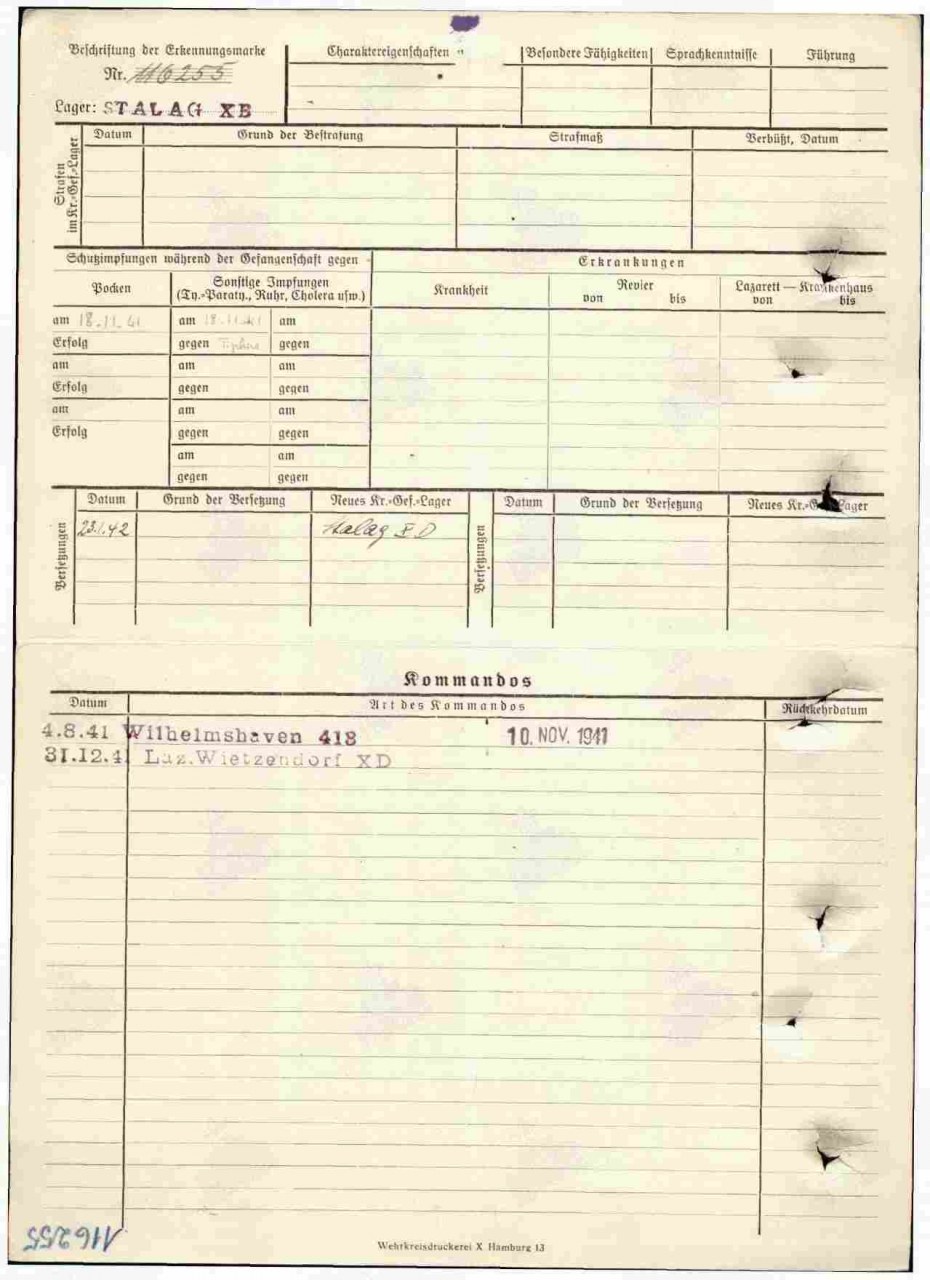 Beschriftung der Erkennungsmarke
Nr. 116255
Lager: STALAG XB
Charaktereigenschaften
Besondere Fähigkeiten
Sprachkenntnisse
Führung
Strafen im Kr.-Gef.-Lager
Datum
Grund der Bestrafung
Strafmaß
Verbüßt, Datum
Schutzimpfungen während der Gefangenschaft gegen
Erkrankungen
Pocken
Sonstige Impfungen
(Ty.-Paraty., Ruhr, Cholera usw.)
Krankheit
Revier
von bis
Lazarett — Krankenhaus
von bis
am 18.11.41 am 18.11.41 am
Erfolg gegen gegen
am am am
Erfolg gegen gegen
am am am
Erfolg gegen gegen
am am
gegen gegen
Versetzungen
Datum Grund der Versetzung Neues Kr.-Gef.-Lager
23.1.42 Stalag X D
Versetzungen
Datum Grund der Versetzung Neues Kr.-Gef.-Lager
Kommandos
Datum Art des Kommandos Rückkehrdatum
4.8.41 Wilhelmshaven 418 10. NOV. 1941
31.12.41 Laz.Wietzendorf XD
116255
Wehrkreisdruckerei X Hamburg 13